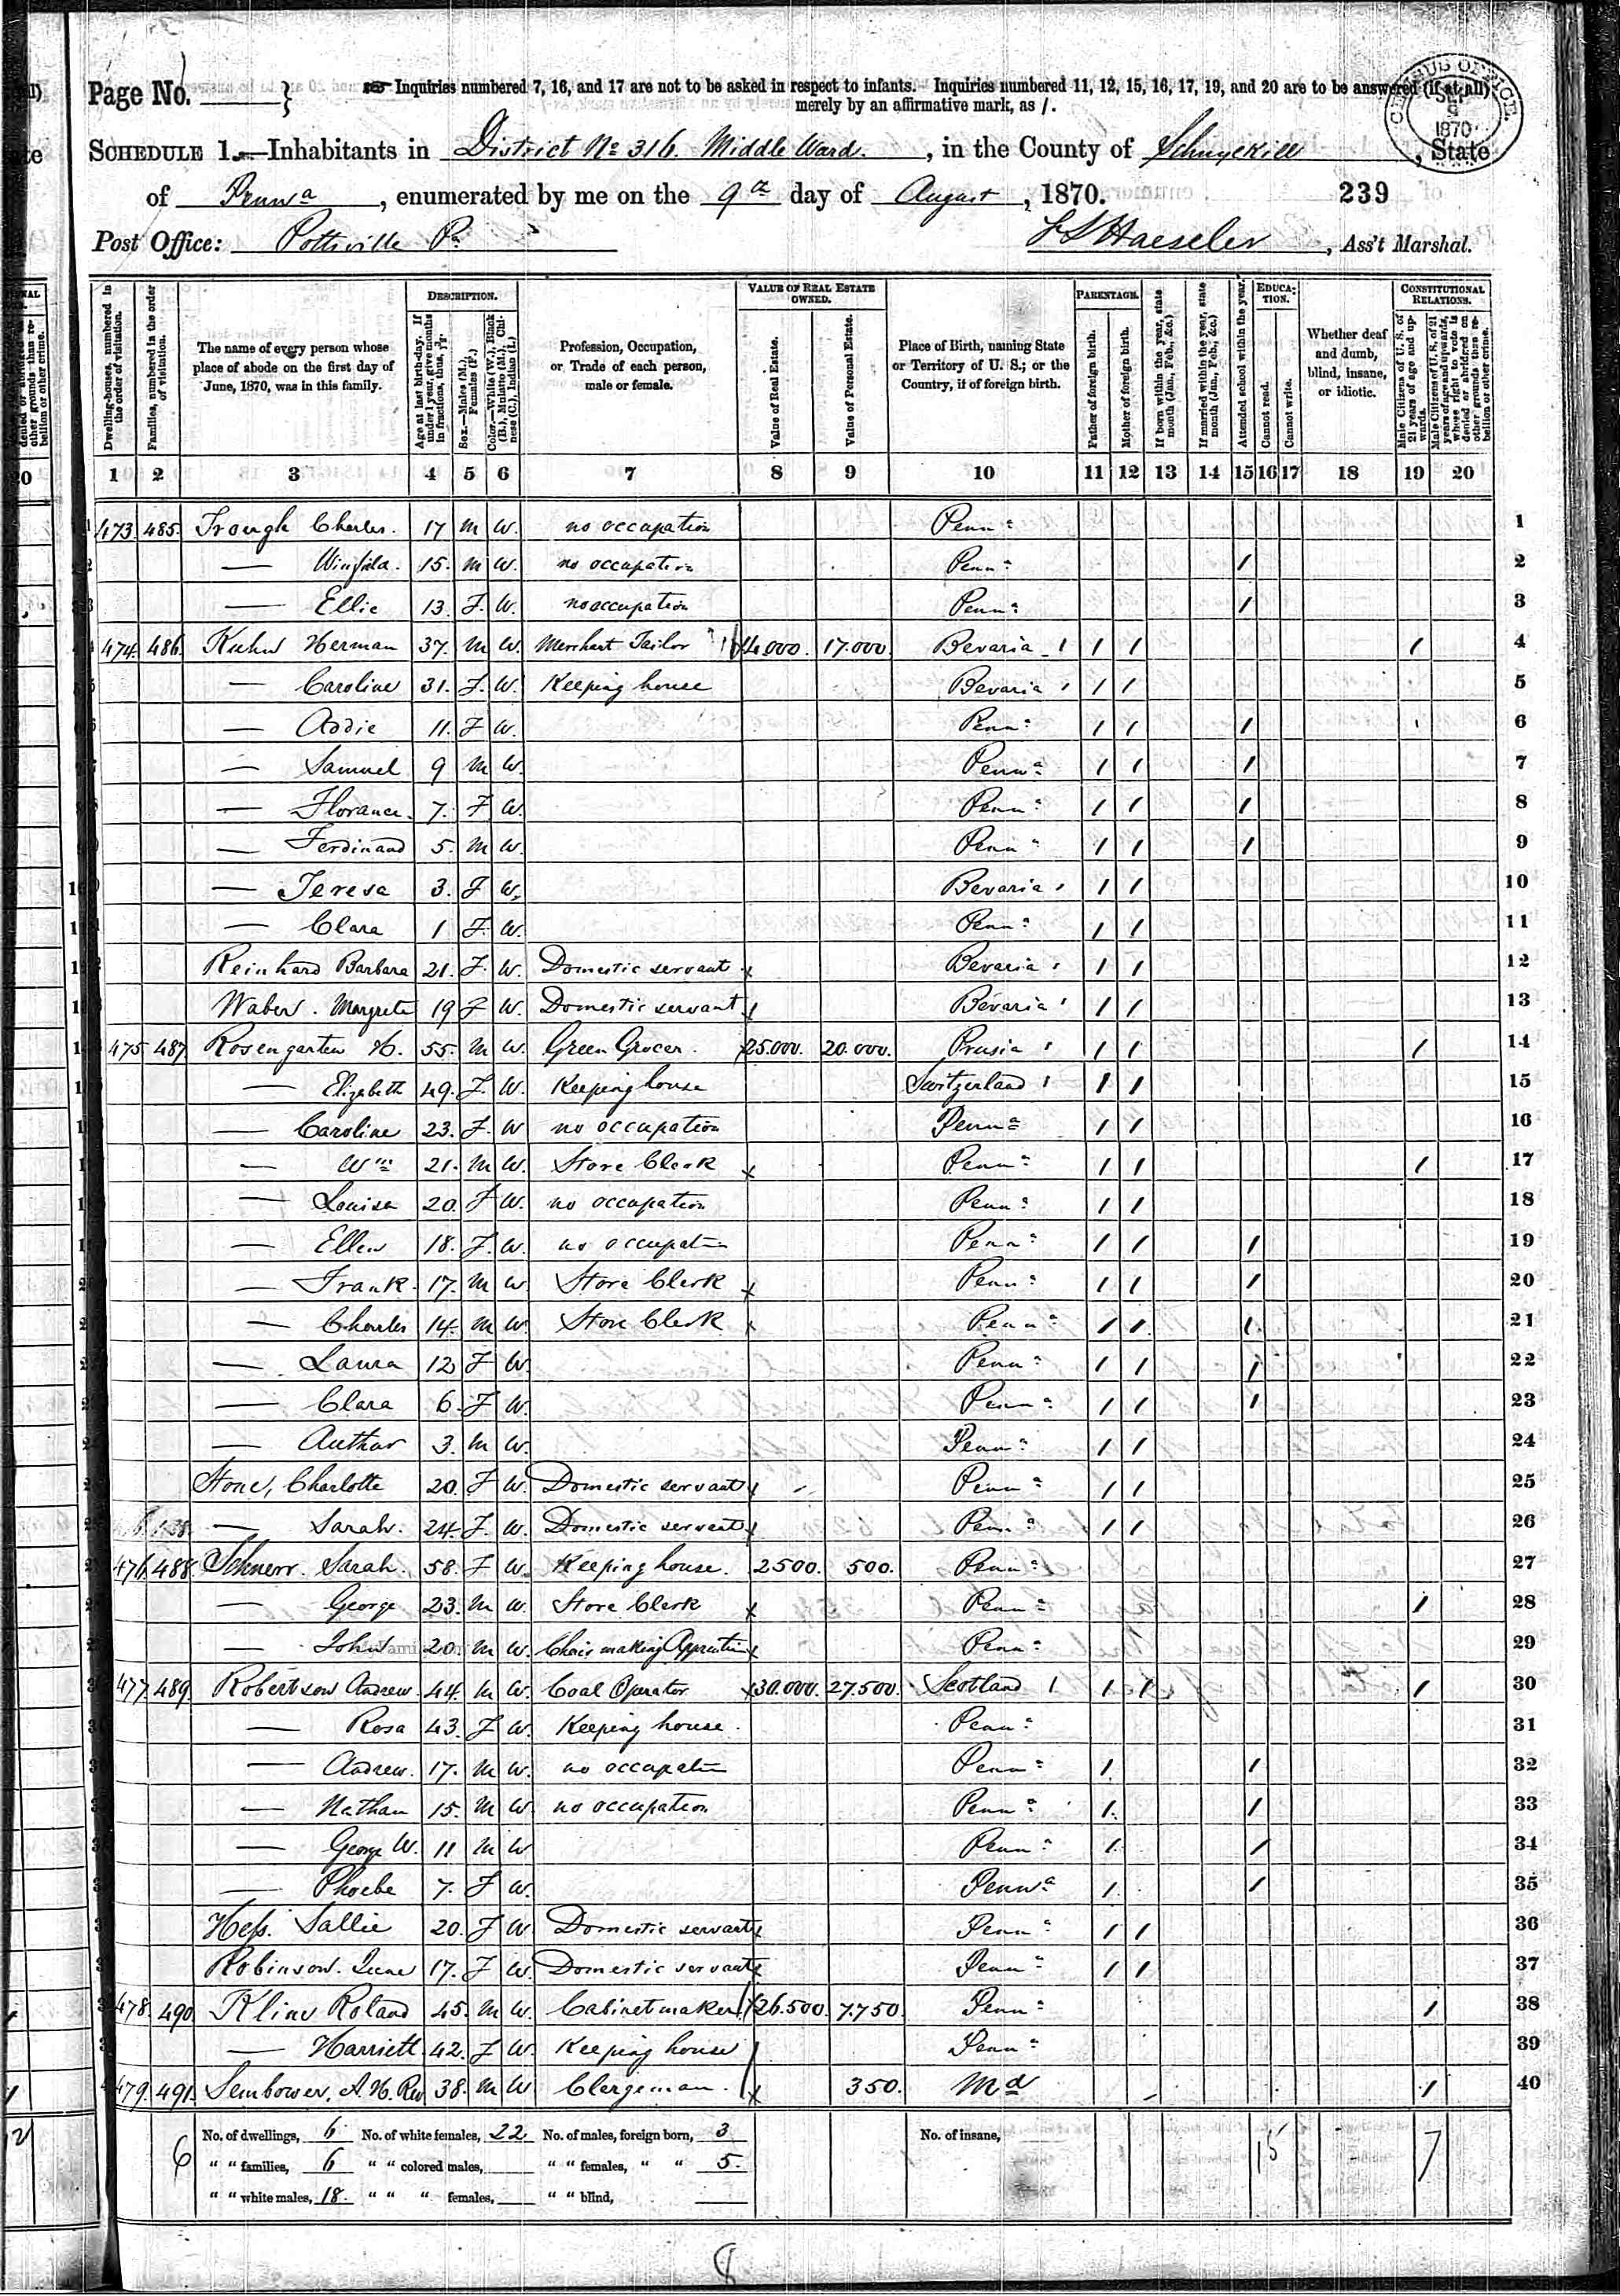 Page No. } Inquiries numbered 7, 16, and 17 are not to be asked in respect to infants. Inquiries numbered 11, 12, 15, 16, 17, 19, and 20 are to be answered (if at all)
merely by an affirmative mark, as /.
CENSUS OFFICE. SEP 1870
SCHEDULE 1.—Inhabitants in District No 316. Middle Ward., in the County of Schuylkill, State
of Penna, enumerated by me on the 9th day of August, 1870. 239
Post Office: Pottsville Pa LS Haeseler, Ass't Marshal.
Dwelling-houses, numbered in the order of visitation.
Families, numbered in the order of visitation.
The name of every person whose place of abode on the first day of June, 1870, was in this family.
DESCRIPTION.
Age at last birth-day. If under 1 year, give months in fractions, thus, 3/12.
Sex.—Males (M.), Females (F.)
Color.—White (W.), Black (B.), Mulatto (M.), Chinese (C.), Indian (I.)
Profession, Occupation, or Trade of each person, male or female.
VALUE OF REAL ESTATE OWNED.
Value of Real Estate.
Value of Personal Estate.
Place of Birth, naming State or Territory of U. S.; or the Country, if of foreign birth.
PARENTAGE.
Father of foreign birth.
Mother of foreign birth.
If born within the year, state month (Jan., Feb., &c.)
If married within the year, state month (Jan., Feb., &c.)
Attended school within the year.
EDUCATION.
Cannot read.
Cannot write.
Whether deaf and dumb, blind, insane, or idiotic.
CONSTITUTIONAL RELATIONS.
Male Citizens of U. S. of 21 years of age and upwards.
Male Citizens of U. S. of 21 years of age and upwards, whose right to vote is denied or abridged on other grounds than rebellion or other crime.
1 2 3 4 5 6 7 8 9 10 11 12 13 14 15 16 17 18 19 20
473. 485. Trough Charles. 17 M W. no occupation Penna 1
— Winfield. 15. M W. no occupation Penna / 2
— Ellie 13. F. W. no occupation Penna / 3
474. 486. Kuhn Herman 37. M W. Merchant Tailor 14.000. 17.000. Bevaria / / / / 4
— Caroline 31. F. W. Keeping house Bevaria / / / 5
— Addie 11. F W. Penna / / / 6
— Samuel 9 M W. Penna / / / 7
— Florance. 7. F W. Penna / / / 8
— Ferdinand 5. M W. Penna / / / 9
— Teresa 3. F W. Bevaria / / / 10
— Clara 1 F. W. Penna / / 11
Reinhard Barbara 21. F. W. Domestic servant x Bevaria / / / 12
Waber. Margreta 19 F W. Domestic servant x Bevaria / / / 13
475 487. Rosengarten H. 55. M W. Green Grocer. 25.000. 20.000. Prusia / / / / 14
— Elizabeth 49. F. W. Keeping house Switzerland / / / 15
— Caroline 23. F. W no occupation Penna / / 16
— Wm 21. M W. Store Clerk x Penna / / / 17
— Louisa 20. F W. no occupation Penna / / 18
— Ellen 18. F. W. no occupation Penna / / / 19
— Frank. 17. M W. Store Clerk x Penna / / / 20
— Charles 14. M W. Store Clerk x Penna / / / 21
— Laura 12 F W. Penna / / / 22
— Clara 6. F W. Penna / / / 23
— Author 3. M W. Penna / / 24
Stone, Charlotte 20. F W. Domestic servant x Penna / / 25
— Sarah. 24. F. W. Domestic servant x Penna / / 26
476. 488. Schnerr. Sarah. 58. F W. Keeping house. 2500. 500. Penna 27
— George 23. M W. Store Clerk x Penna / 28
— John 20. M W. Chair making Apprentice x Penna 29
477. 489. Robertson Andrew. 44. M W. Coal Operator x 30.000. 27.500. Scotland / / / / 30
— Rosa 43. F W. Keeping house. Penna 31
— Andrew. 17. M W. no occupation Penna / / 32
— Nathan 15. M W. no occupation Penna / / 33
— George W. 11 M W Penna / / 34
— Phoebe 7. F W. Penna / / 35
Hess. Sallie 20. F W Domestic servant x Penna / / 36
Robinson. June 17. F W. Domestic servant x Penna / / 37
478. 490. Kline Roland 45. M W. Cabinetmaker 26.500. 7.750. Penna / 38
— Harriett. 42. F W. Keeping house Penna 39
479. 491. Sembower, A. H. Rev 38. M W Clergeman. x 350. Md / 40
6 No. of dwellings, 6 No. of white females, 22 No. of males, foreign born, 3 No. of insane, 15 7
" " families, 6 " " colored males, " " females, " " 5.
" " white males, 18. " " " females, " " blind,
8